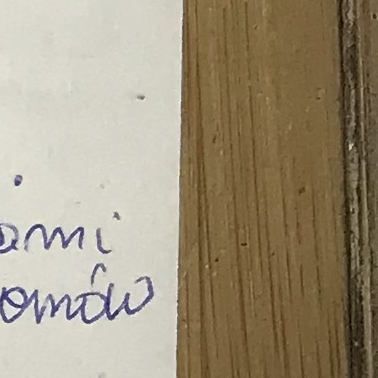 ami
omów